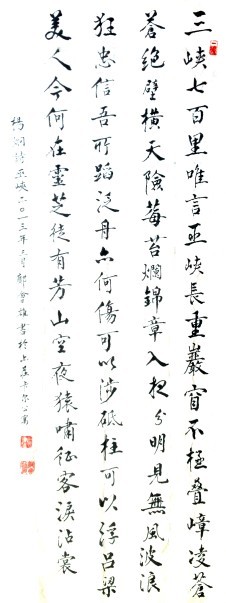 三峡七百里唯言巫峡長重巖窅不極叠嶂凌蒼
蒼绝壁横天險莓苔爛錦章入夜分明見無風波浪
狂忠信吾所蹈泛舟亦何傷可以涉砥柱可以浮吕梁
美人今何在靈芝徒有芳山空夜猿嘯征客淚沾裳
楊炯詩巫峡二〇一三年三月